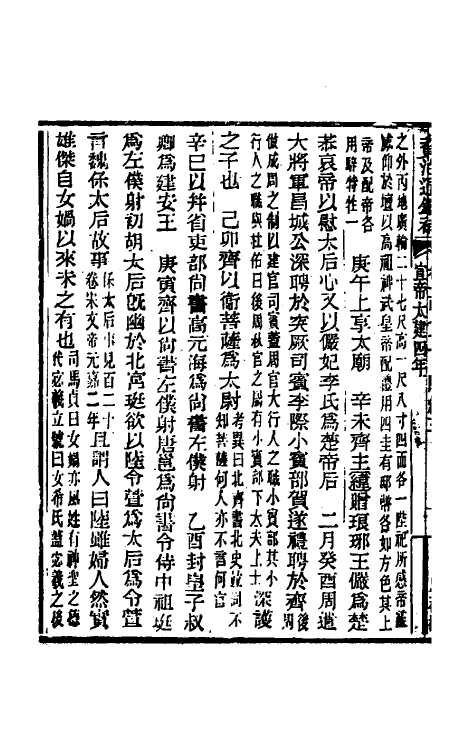 宣帝太建四年
之外丙地廣輪二十七尺高一尺八寸四面各一陛祀所感帝靈
威仰於壇以高祖神武皇帝配禮用四圭有邸幣各如方色其上
帝及配帝各
用騂特牲一
庚午上享太廟　辛未齊主贈琅邪王儼爲楚
恭哀帝以慰太后心又以儼妃李氏爲楚帝后　二月癸酉周遣
大將軍昌城公深聘於突厥司賓李際小賓部賀遂禮聘於齊
後周
倣成周之制以建官司賓蓋周官大行人之職小賓部其小
行人之職與杜佑曰後周秋官之屬有小賓部下大夫上士
深護
之子也　己卯齊以衛菩薩爲太尉
考異曰北齊書北史紀同不
知菩薩何人亦不言何官
辛巳以幷省吏部尚書高元海爲尚書左僕射　乙酉封皇子叔
卿爲建安王　庚寅齊以尚書左僕射唐邕爲尚書令侍中祖珽
爲左僕射初胡太后既幽於北宮珽欲以陸令萱爲太后爲令萱
言魏保太后故事
保太后事見百二十
卷宋文帝元嘉二年
且謂人曰陸雖婦人然實
雄傑自女媧以來未之有也
司馬貞曰女媧亦風姓有神聖之德
代宓羲立號曰女希氏蓋宓羲之後